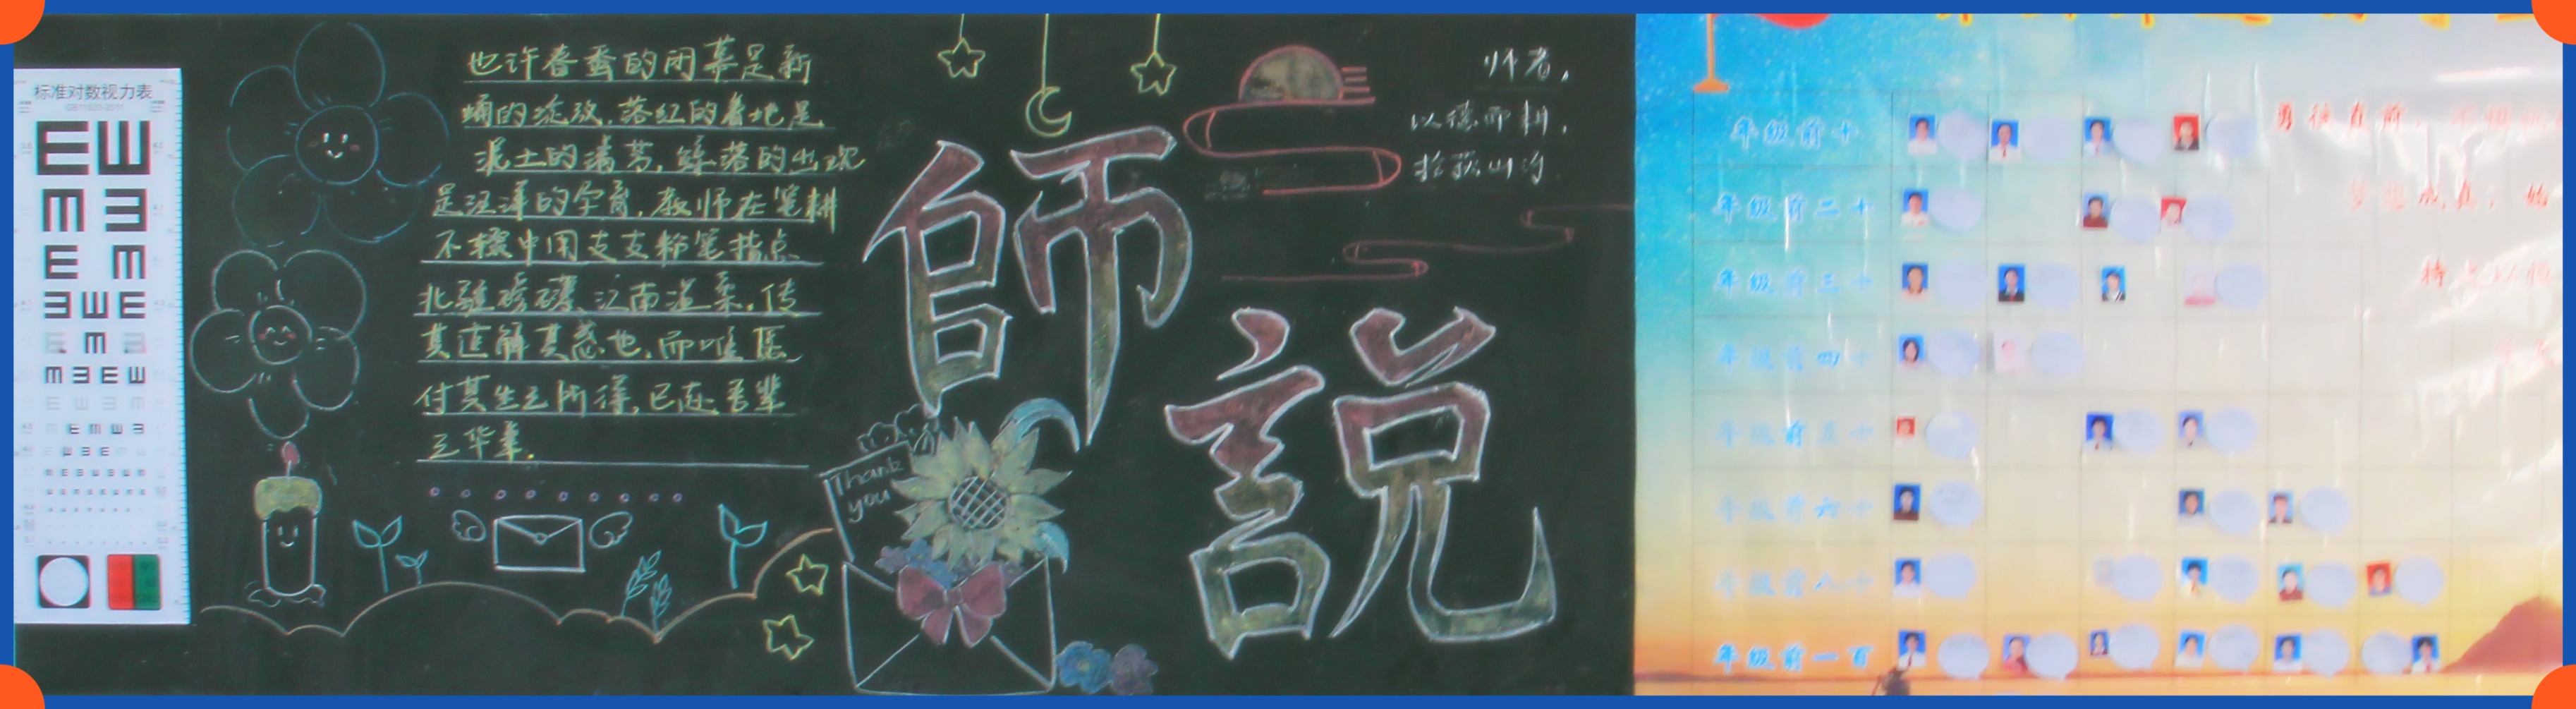 标准对数视力表
GB11533-2011
也许春蚕的闭幕是新
蛹的绽放,落红的着地是
泥土的清芳,
是汪洋的孕育,教师在笔耕
不辍中用支支粉笔指点
江南温柔,传
其道解其惑也,而唯愿
付其生之所得,已在吾辈
之华章.
Thank
you
師
說
师者,
以德而耕,
年级前十
年级前二十
年级前三十
年级前四十
年级前五十
年级前六十
年级前八十
年级前一百
勇往直前,
梦想成真,始
持之以恒